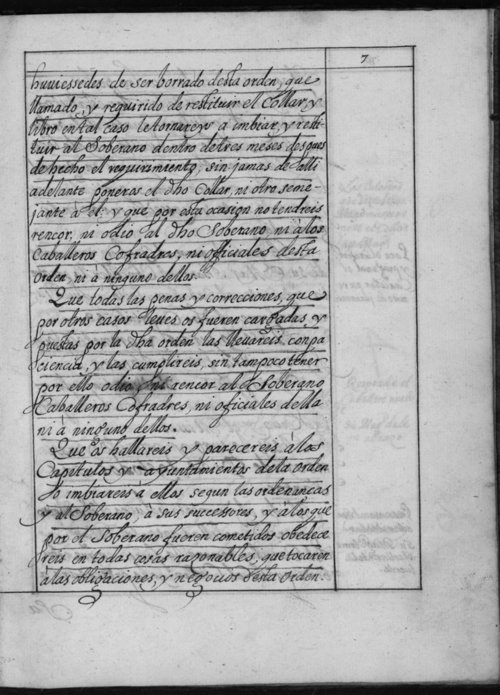 7
huviessedes de ser borrado desta orden, que
llamado, y requirido de restituir el Collar, y
libro en tal caso letornareys a imbiar, y resti-
tuir al Soberano dentro detres meses despues
de hecho el requirimiento, sin jamas de alli
adelante poneros el dho Collar, ni otro seme-
jante à el; y que por esta ocasion no tendreis
rencor, ni odio al dho Soberano, ni à los
Caballeros Cofradres, ni officiales desta
orden, ni à ninguno dellos.
Que todas las penas, y correcciones, que
por otros casos leues os fueren cargadas, y
puestas por la dha orden, las lleuareis, con pa
ciencia, y las cumplireis, sin tampoco tener
por ello odio, ni rencor al Soberano
Caballeros Cofradres, ni oficiales della
ni à ninguno dellos.
Que os hallareis y parecereis, à los
Capitulos y ayuntamientos dela orden
o imbiareis à ellos segun las ordenanças
y al Soberano, à sus successores, y à los que
por el Soberano fueren cometidos obedece
reis en todas cosas razonables, que tocaren
à las obligaciones, y negocios desta Orden.